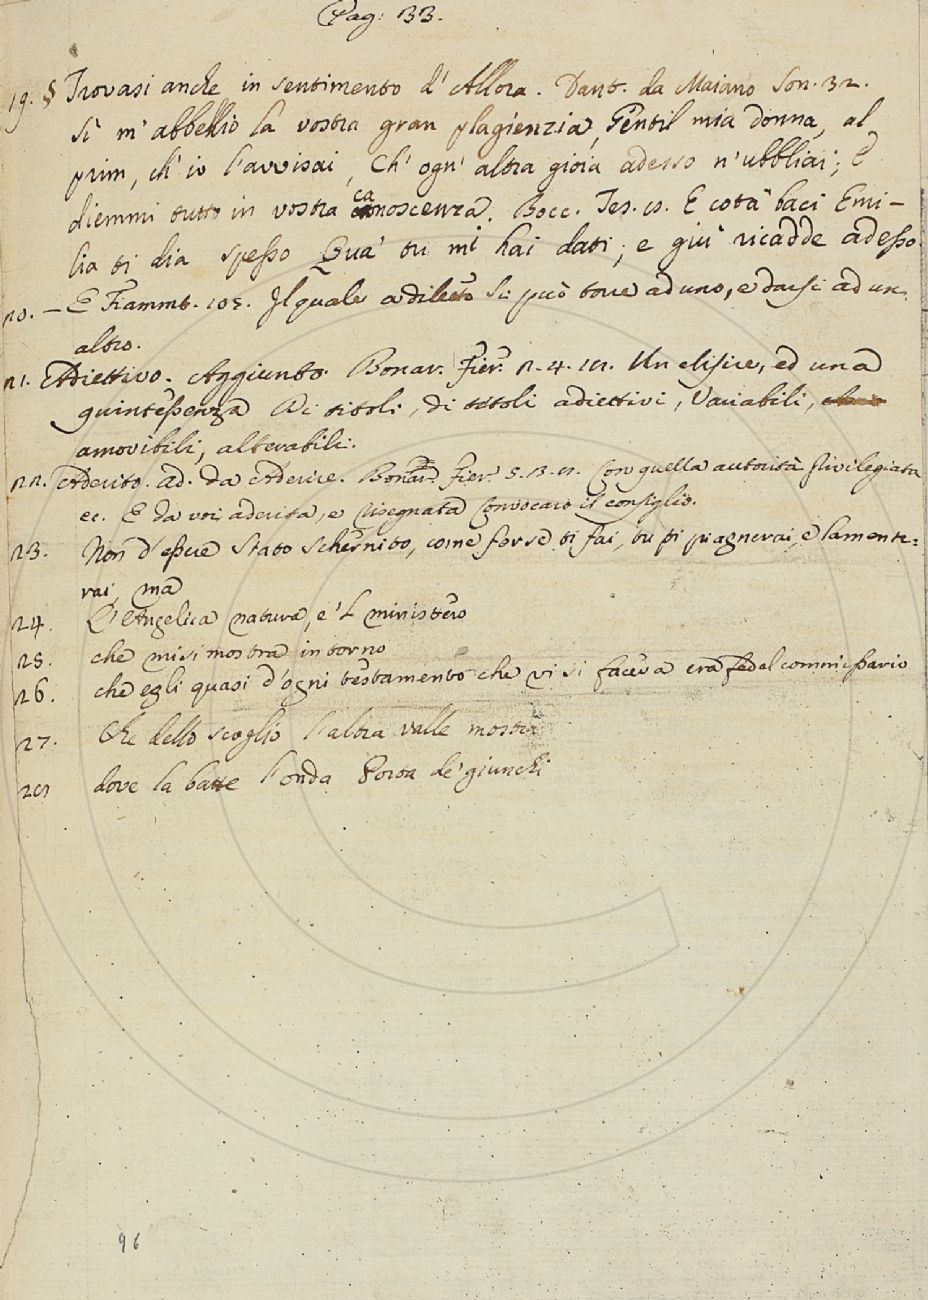 Pag: 33.
19. § Trovasi anche in sentimento d'Allora. Dant. da Maiano Son. 32.
Sì m'abbellìo la vostra gran plagienzia, Gentil mia donna, al
prim, ch'io l'avvisai, Ch'ogn'altra gioia adesso n'ubbliai; E
diemmi tutto in vostra canoscenza. Bocc. Tes. E cota' baci Emi-
lia ti dia spesso Qua' tu mi hai dati; e giù ricadde adesso.
20. — E Fiammt. 105. Il quale a diletto si può torre ad uno, e darsi ad un
altro.
21. Adiettivo. Aggiunto. Bonar. Fier. 2. 4. Un elisire, ed una
quintessenza Di titoli, di titoli adiettivi, Variabili,
amovibili, alterabili.
22. Aderito. ad. da Aderire. Bonar. Fier. 5. Con quella autorità privilegiata
ec. E da voi aderita, e risegnata Convocaro il consiglio.
23. Non d'essere stato schernito, come forse ti fai, tu ti piagnerai, e lamente=
rai, ma
24. L'Angelica natura, e'l ministero
25. che misi mostra intorno
26. che egli quasi d'ogni testamento che vi si faceva era fedel commissario
27. Che dello scoglio l'altra valle mostra
28 dove la batte l'onda Porta de' giunchi
96